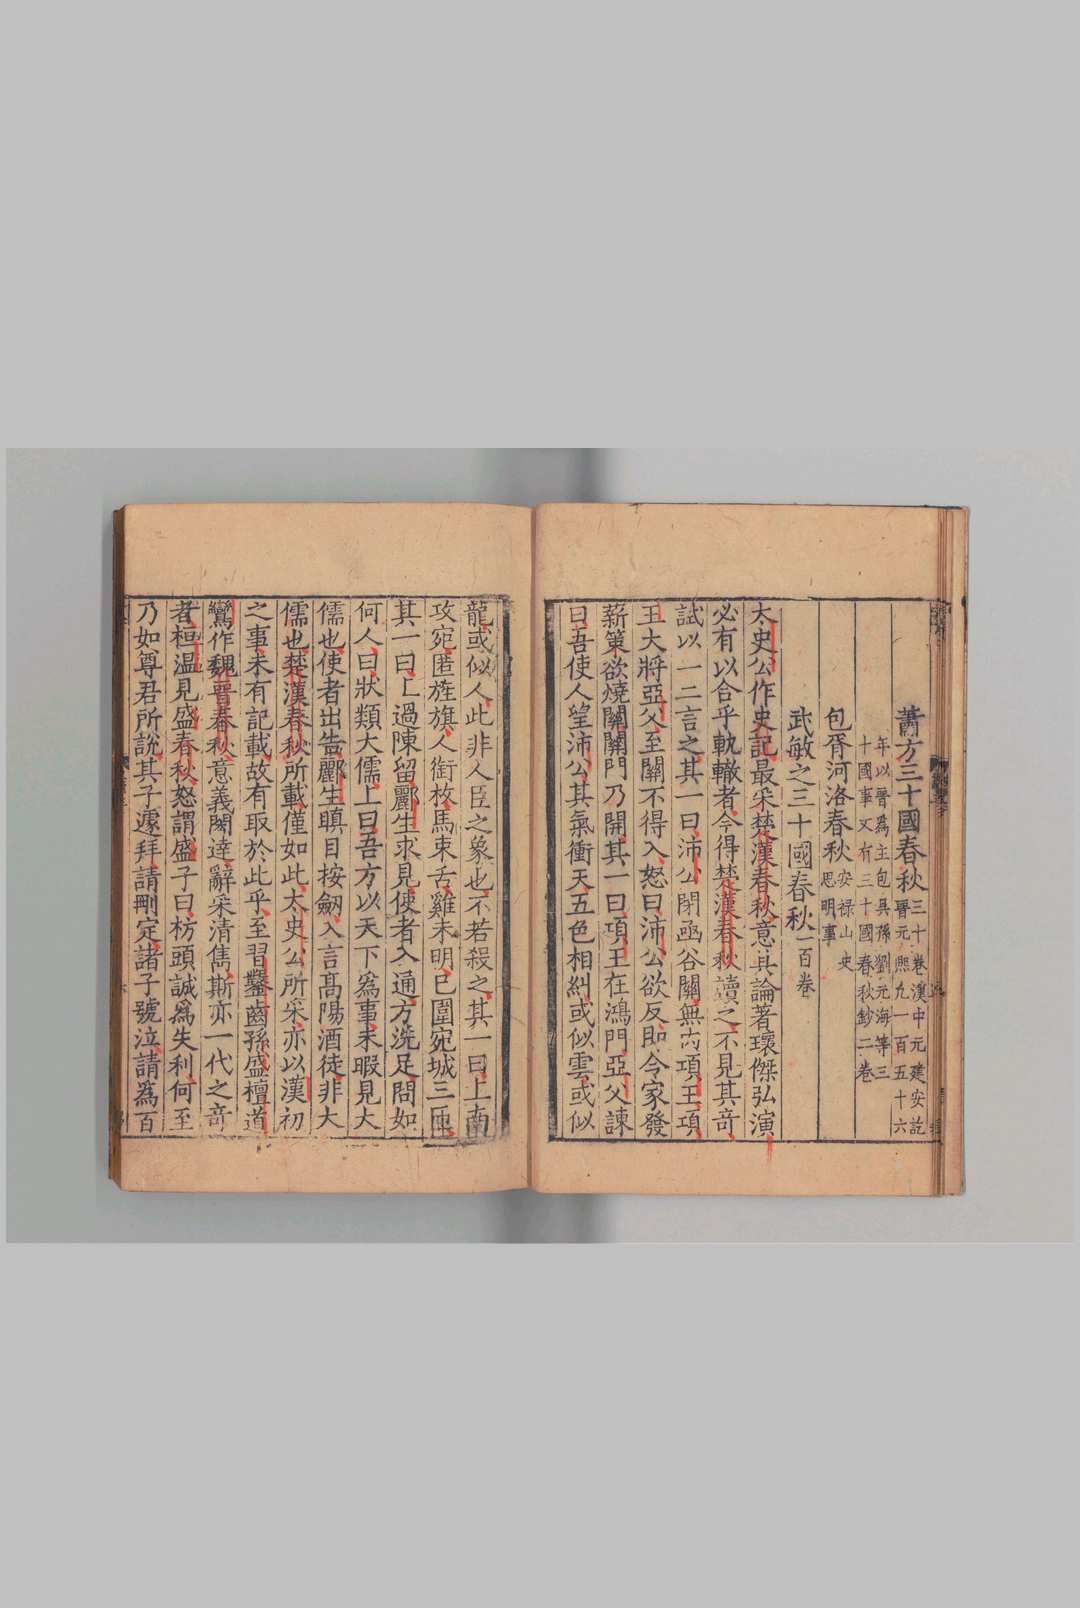 蕭方三十國春秋三十卷漢中元建安訖晉元熙九一百五十六
年以晉爲主包具孫劉元海等三十國事又有三十國春秋鈔二卷
包胥河洛春秋安祿山史思明事
武敏之三十國春秋一百卷
太史公作史記最采楚漢春秋意其論著瓌傑弘演
必有以合乎軌轍者今得楚漢春秋讀之不見其竒
試以一二言之其一曰沛公閉函谷關無内項王項
王大將亞父至關不得入怒曰沛公欲反即令家發
薪策欲燒關關門乃開其一曰項王在鴻門亞父諫
曰吾使人望沛公其氣衝天五色相糾或似雲或似
龍或似人此非人臣之象也不若殺之其一曰上南
攻宛匿旌旗人銜枚馬束舌雞未明已圍宛城三匝
其一曰上過陳留酈生求見使者入通方洗足問如
何人曰狀類大儒上曰吾方以天下爲事未暇見大
儒也使者出告酈生瞋目按劒入言高陽酒徒非大
儒也楚漢春秋所載僅如此太史公所采亦以漢初
之事未有記載故有取於此乎至習鑿齒孫盛檀道
鸞作魏晉春秋意義閎達辭采清雋斯亦一代之竒
者桓温見盛春秋怒謂盛子曰枋頭誠爲失利何至
乃如尊君所說其子遽拜請刪定諸子號泣請爲百